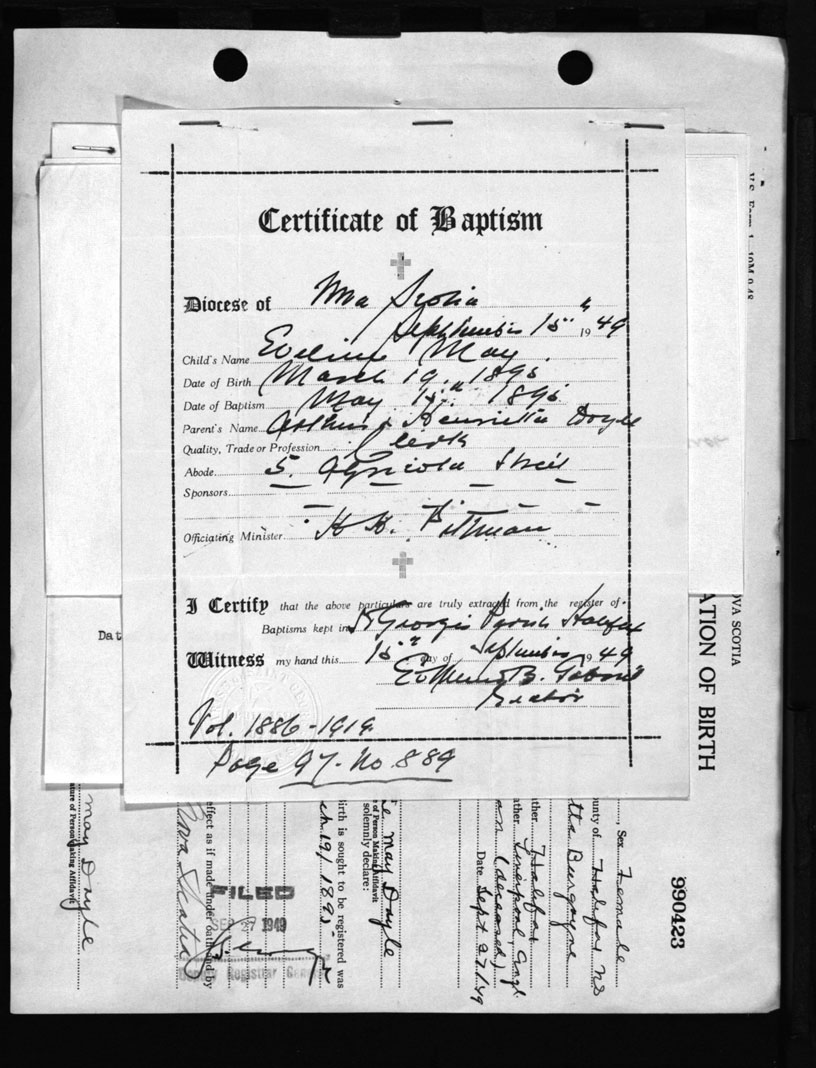 Certificate of Baptism
Diocese of Nova Scotia
September 15" 1949
Child's Name Eveline May
Date of Birth March 19" 1895
Date of Baptism May 15" 1895
Parent's Name Arthur & Henrietta Doyle
Quality, Trade or Profession Clerk
Abode 5. Agricola Street
Sponsors
Officiating Minister H. H. Pittman
I Certify that the above particulars are truly extracted from the register of
Baptisms kept in St Georges Parish Halifax
Witness my hand this 15" day of September 1949
B.
Rector
Vol. 1886-1919
Page 97. No 889
Dat
OVA SCOTIA
ATION OF BIRTH
990423
, Sex Female
ounty of Halifax NS
tta Burgoyne
ther Halifax
ather Liverpool, Engl
an (deceased)
Date Sept 27/49
e May Doyle
e of Person Making Affidavit
solemnly declare:
irth is sought to be registered was
ch 19/1895
FILED
SEP 27 1949
Registrar General
effect as if made under oath and by
ature of Person making Affidavit
may Doyle